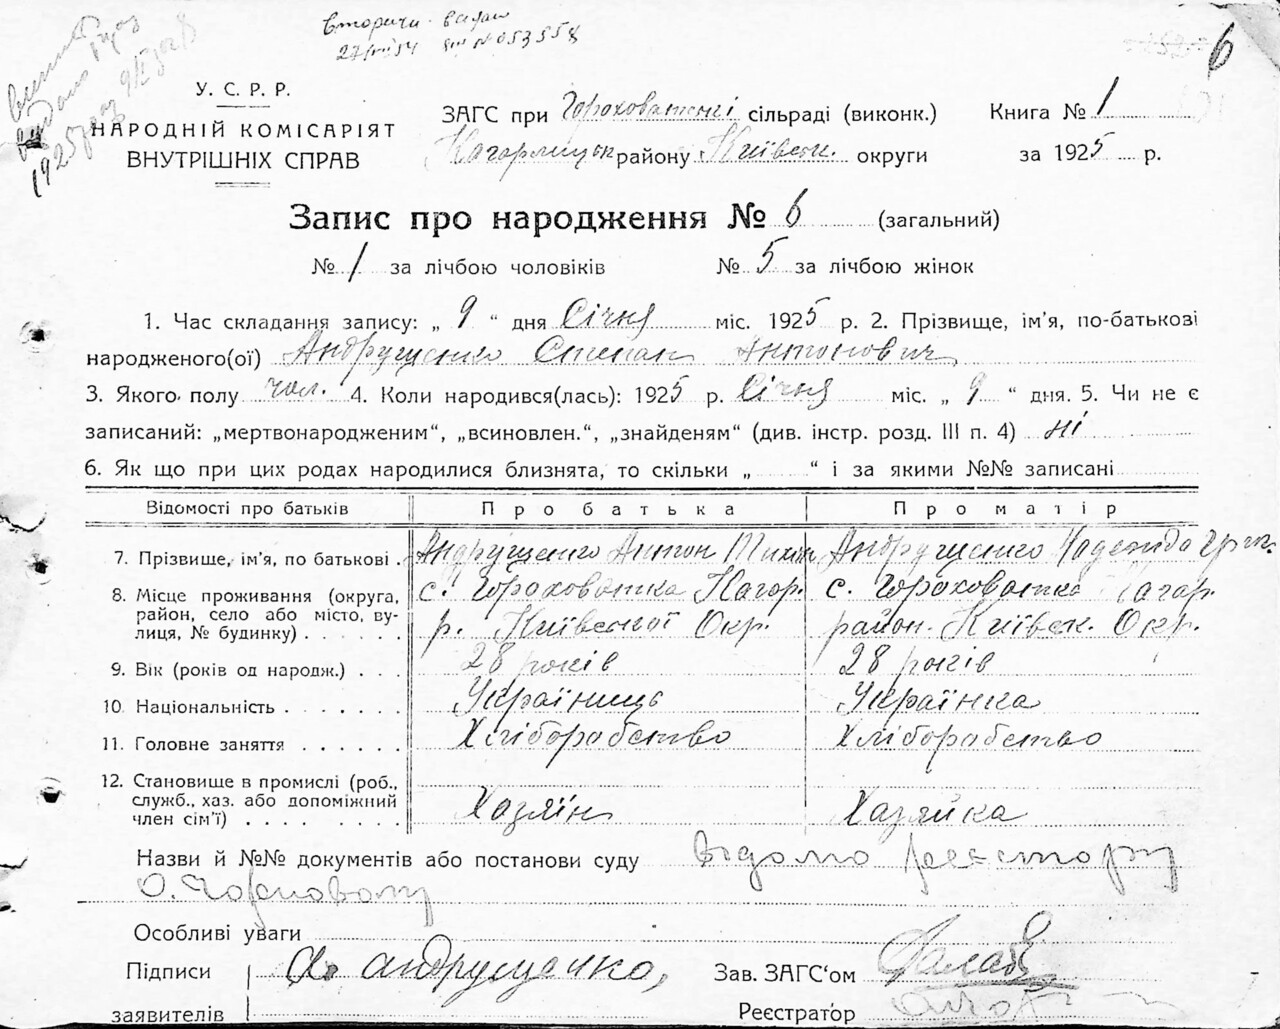 вторичн. видан
27/VIII 54 № 053558
6
У. С. Р. Р.
НАРОДНІЙ КОМІСАРІЯТ
ВНУТРІШНІХ СПРАВ
ЗАГС при Гороховатскі сільраді (виконк.)
Кагарлицьк району Київськ. округи
Книга № 1
за 1925 р.
Запис про народження № 6 (загальний)
№ 1 за лічбою чоловіків № 5 за лічбою жінок
1. Час складання запису: „ 9 “ дня Січня міс. 1925 р. 2. Прізвище, ім’я, по-батькові
народженого(ої) Андрущенко Степан Антонович
3. Якого полу чол. 4. Коли народився(лась): 1925 р. Січня міс. „ 9 “ дня. 5. Чи не є
записаний: „мертвонародженим“, „всиновлен.“, „знайденям“ (див. інстр. розд. III п. 4) ні
6. Як що при цих родах народилися близнята, то скільки „ “ і за якими №№ записані
Відомості про батьків Про батька Про матір
7. Прізвище, ім’я, по батькові. Андрущенко Антон Андрущенко Надежда
8. Місце проживання (округа, с. Гороховатка Кагар. с. Гороховатка Кагар.
район, село або місто, ву-
лиця, № будинку) . . . . . р. Київської Окр. район. Київськ. Окр.
9. Вік (років од народж.) . . . 28 років 28 років
10. Національність . . . . . . . Українець Українка
11. Головне заняття . . . . . . Хліборабство Хліборабство
12. Становище в промислі (роб.,
служб., хаз. або допоміжний
член сім’ї) . . . . . . . . Хазяїн Хазяйка
Назви й №№ документів або постанови суду відомо реєстору
О.
Особливі уваги
Підписи Андрущенко, Зав. ЗАГС‘ом
заявителів Реєстратор